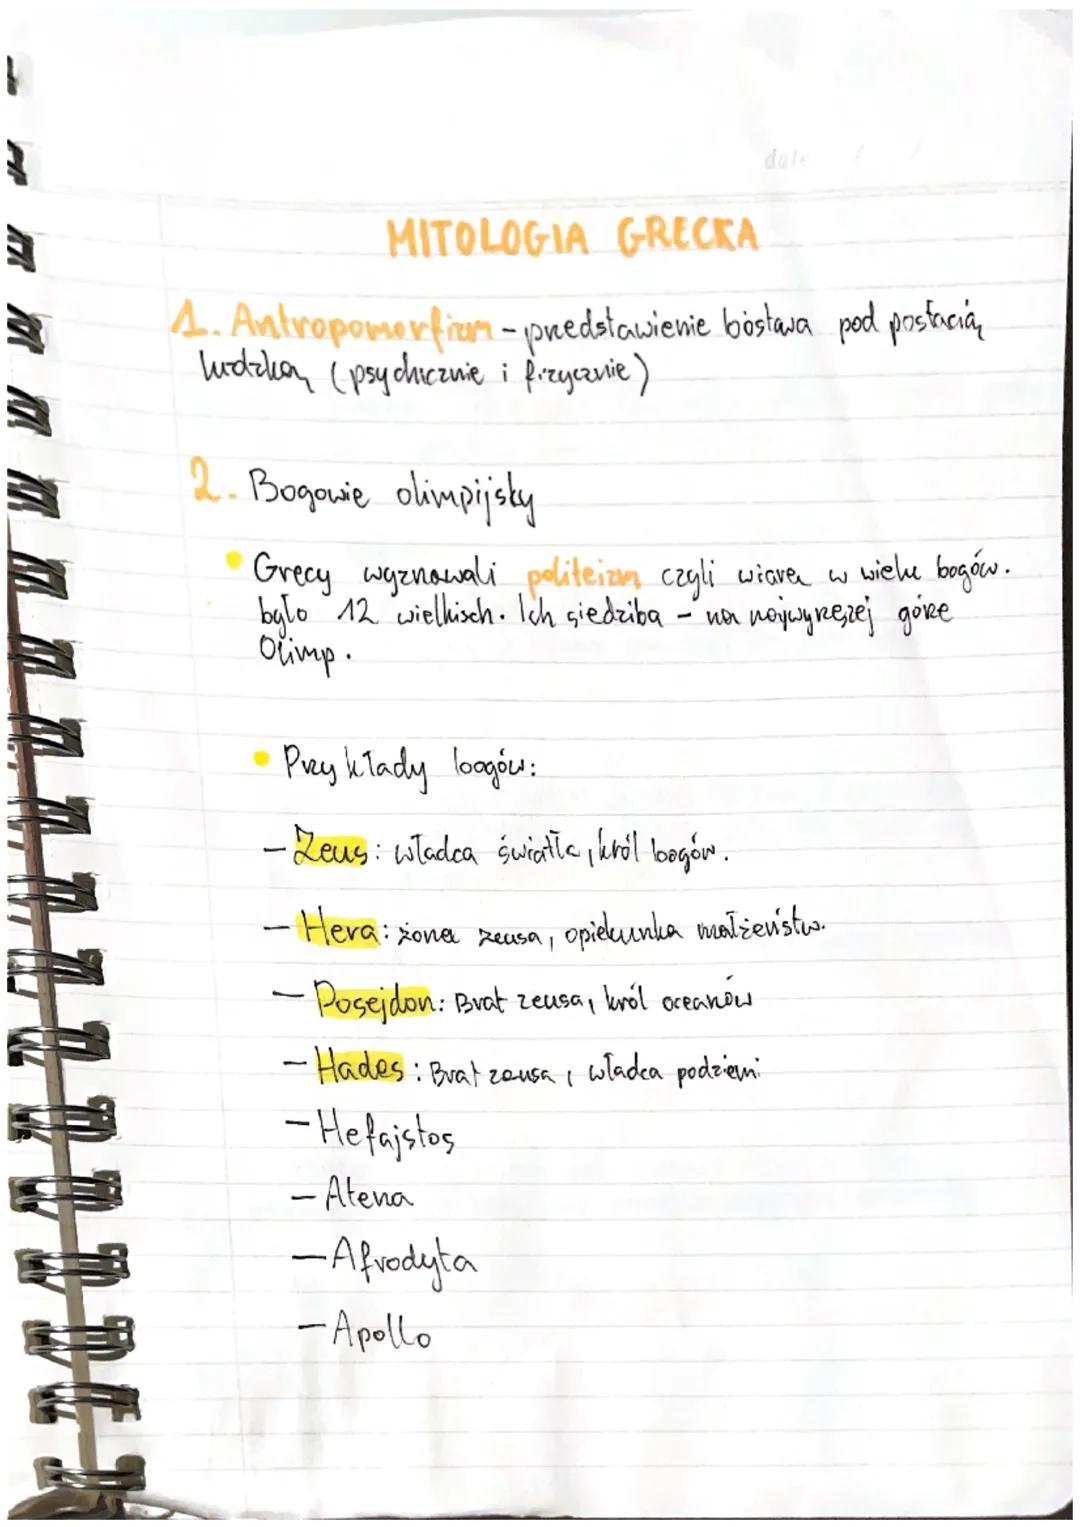 date / /
MITOLOGIA GRECKA
1. Antropomorfizm - przedstawienie bóstawa pod postacią
ludzką (psychicznie i fizycznie)
2. Bogowie olimpijsky
Grecy wyznawali politeizm czyli wiara w wielu bogów.
było 12 wielkisch. Ich siedziba - na najwyższej górze
Olimp.
Przykłady bogów:
- Zeus: władca światła, król bogów.
- Hera: żona zeusa, opiekunka małżeństw.
- Posejdon: Brat zeusa, król oceanów
- Hades: Brat zeusa, władca podziemi
- Hefajstos
- Atena
- Afrodyta
- Apollo